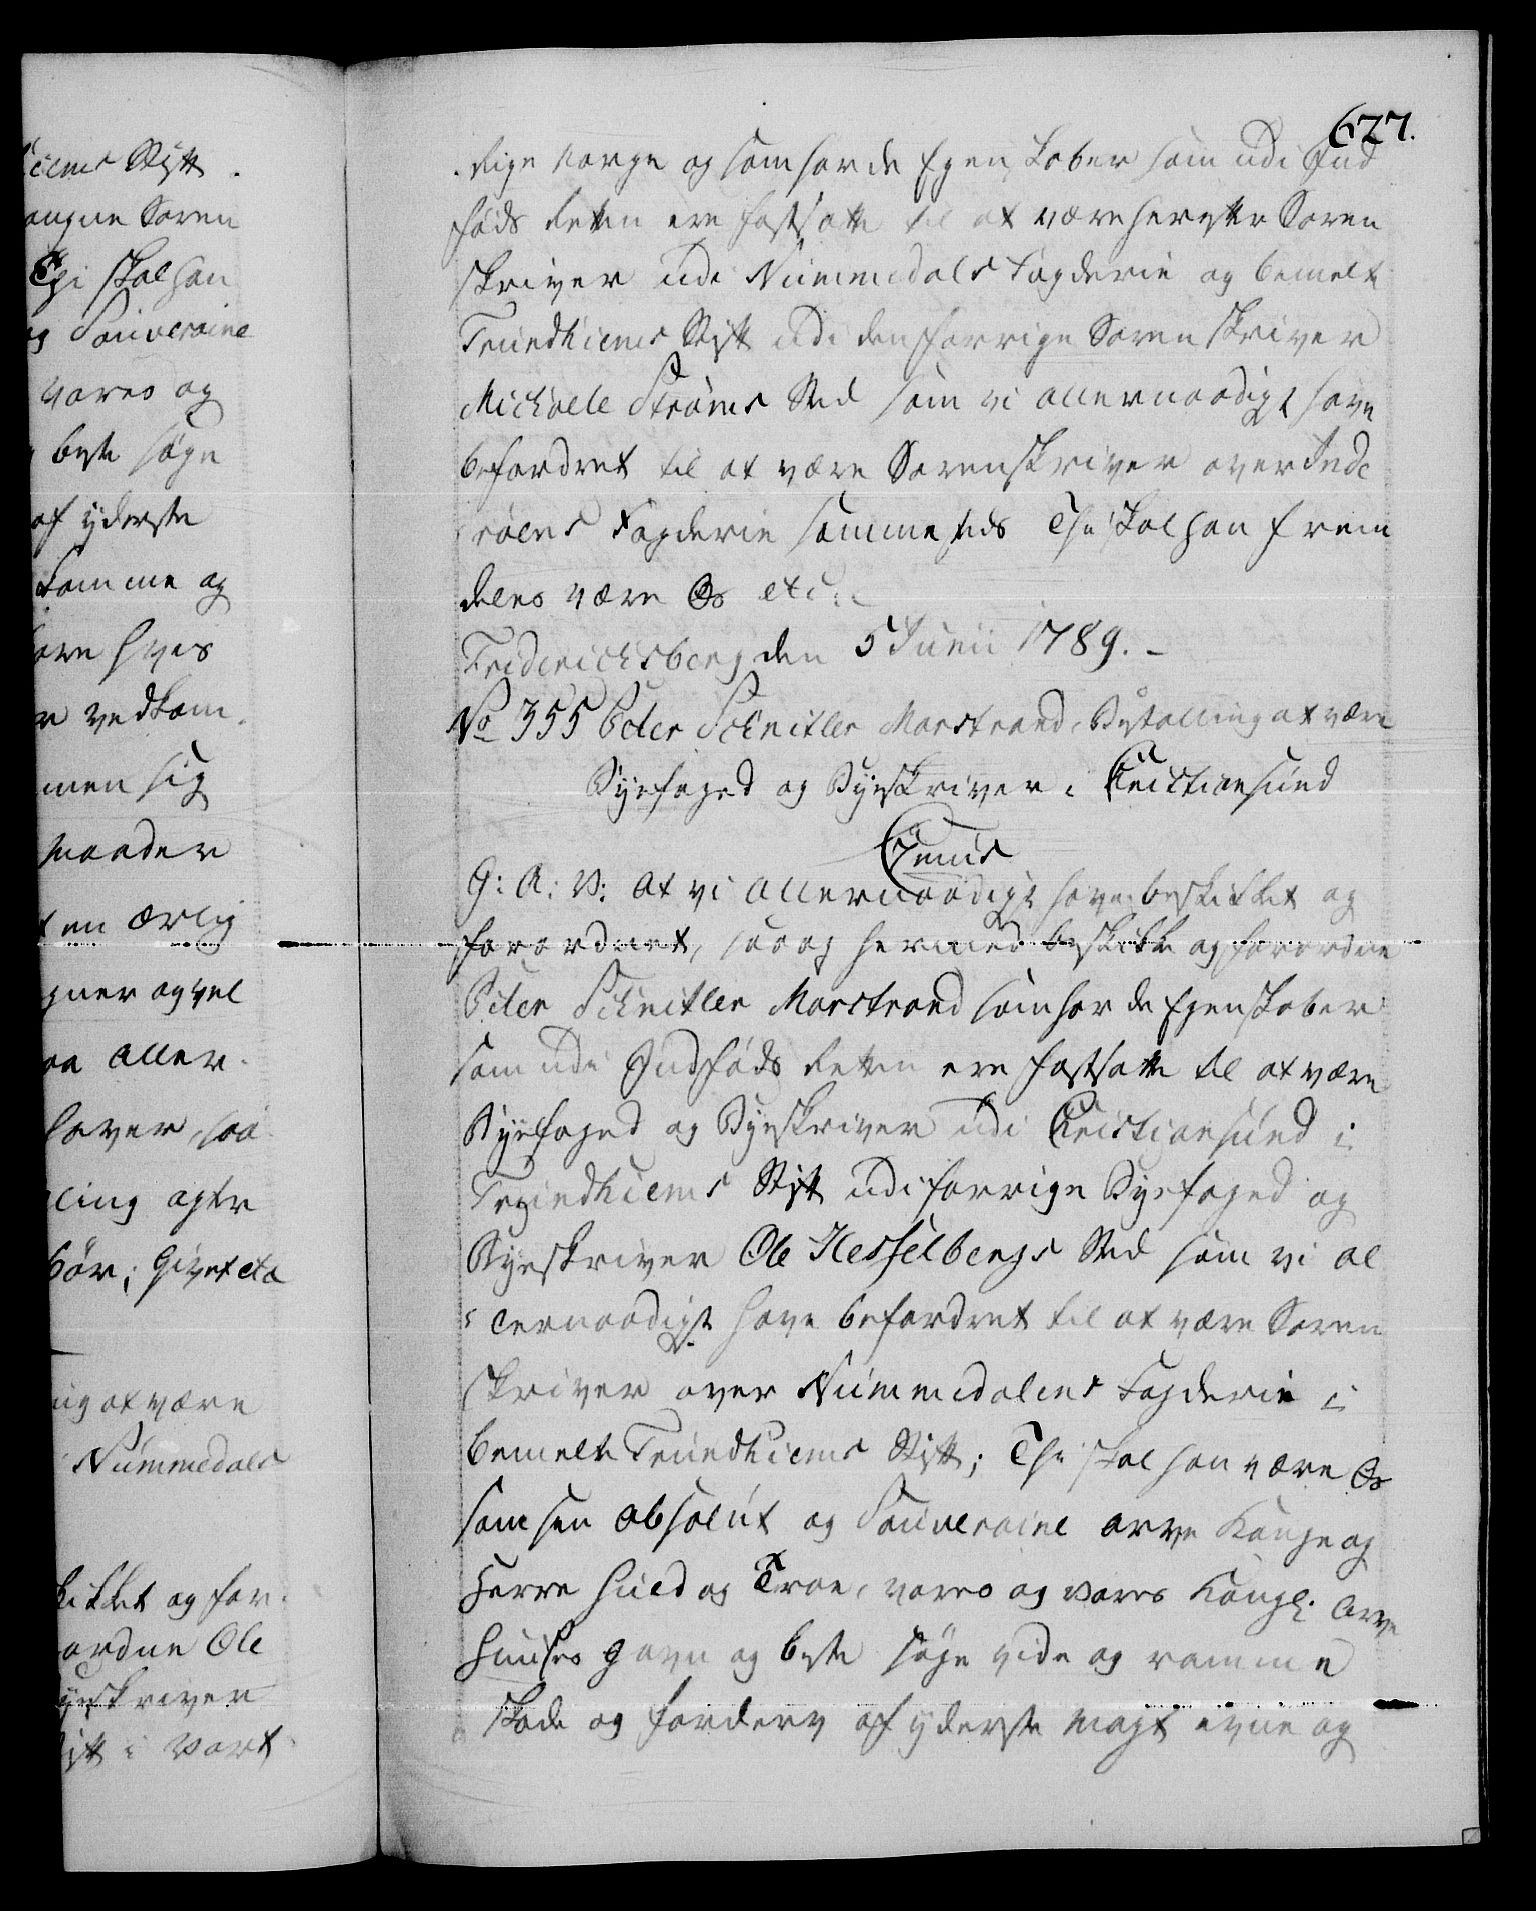 iems Stift
angne Soren
Thi skal han
og Souveraine
vores og
beste søge
af yderste
komme og
hvis
r vedkom
men sig
maader
en ærlig
gner og vel
aller
haver, saa
ling agte
bør; Givet etc
ng at være
Nummedals
kikket og for
ordne Ole
yeskriver
ift i Vort
627.
Rige Norge og som har de Egenskaber som udi Ind
føds Retten ere fastsatte til at være herefter Soren
skriver udi Nummedals Fogderie og bemelte
Trundhiems Stift udi den forrige Sorenskriver
Michaele Strøms Sted som vi allernaadigst have
befordret til at være Sorenskriver over Inde
røens Fogderie sammesteds Thi skal han frem
deles være Os etc:
Friderichsberg den 5 Junii 1789. -
No 355 Peder Schnitler Marstrand, Bestalling at være
Byefoged og Byeskriver i Christiansund
Gratis
G: A: V: at vi allernaadigst have beskikket og
forordnet, saa og hermed beskikke og forordne
Peder Schnitler Marstrand som har de Egenskaber
som udi Indføds Retten ere fastsatte til at være
Byefoged og Byeskriver udi Christiansund i
Trundhiems Stift udi forrige Byefoged og
Byeskriver Ole Hesselbergs Sted som vi al
lernaadigst have befordret til at være Soren
skriver over Nummedalens Fogderie i
bemelte Trundhiems Stift; Thi skal han være Os
som sin absolut og Souveraine arve Konge og
Herre huld og Troe, vores og vores Kongl: Arve
Huuses gavn og beste søge vide og ramme
skade og forderv af yderste magt evne og